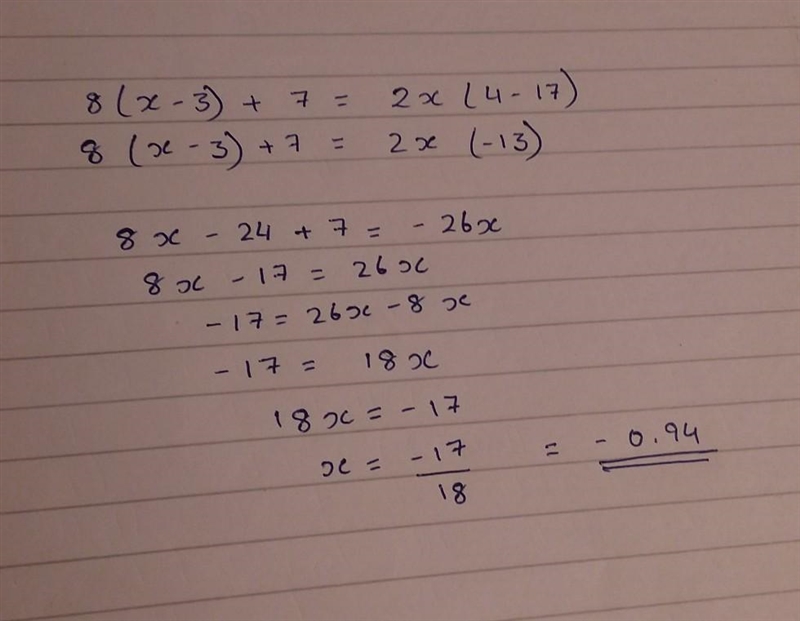 8(x - 3) + 7 = 2x(4 - 17)
8(x - 3) + 7 = 2x(-13)
8x - 24 + 7 = -26x
8x - 17 = 26x
-17 = 26x - 8x
-17 = 18x
18x = -17
x = -17/18 = -0.94